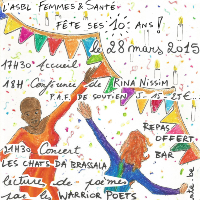 L'ASBL FEMMES & SANTÉ
FÊTE SES 10 ANS!
le 28 mars 2015
17H30 Accueil
18H Conférence de RINA NISSIM
P.A.F. DE SOUTIEN
REPAS
OFFERT
BAR
21H30 Concert
LES CHATS DA BRASSALA
lecture de poèmes
par les WARRIOR POETS